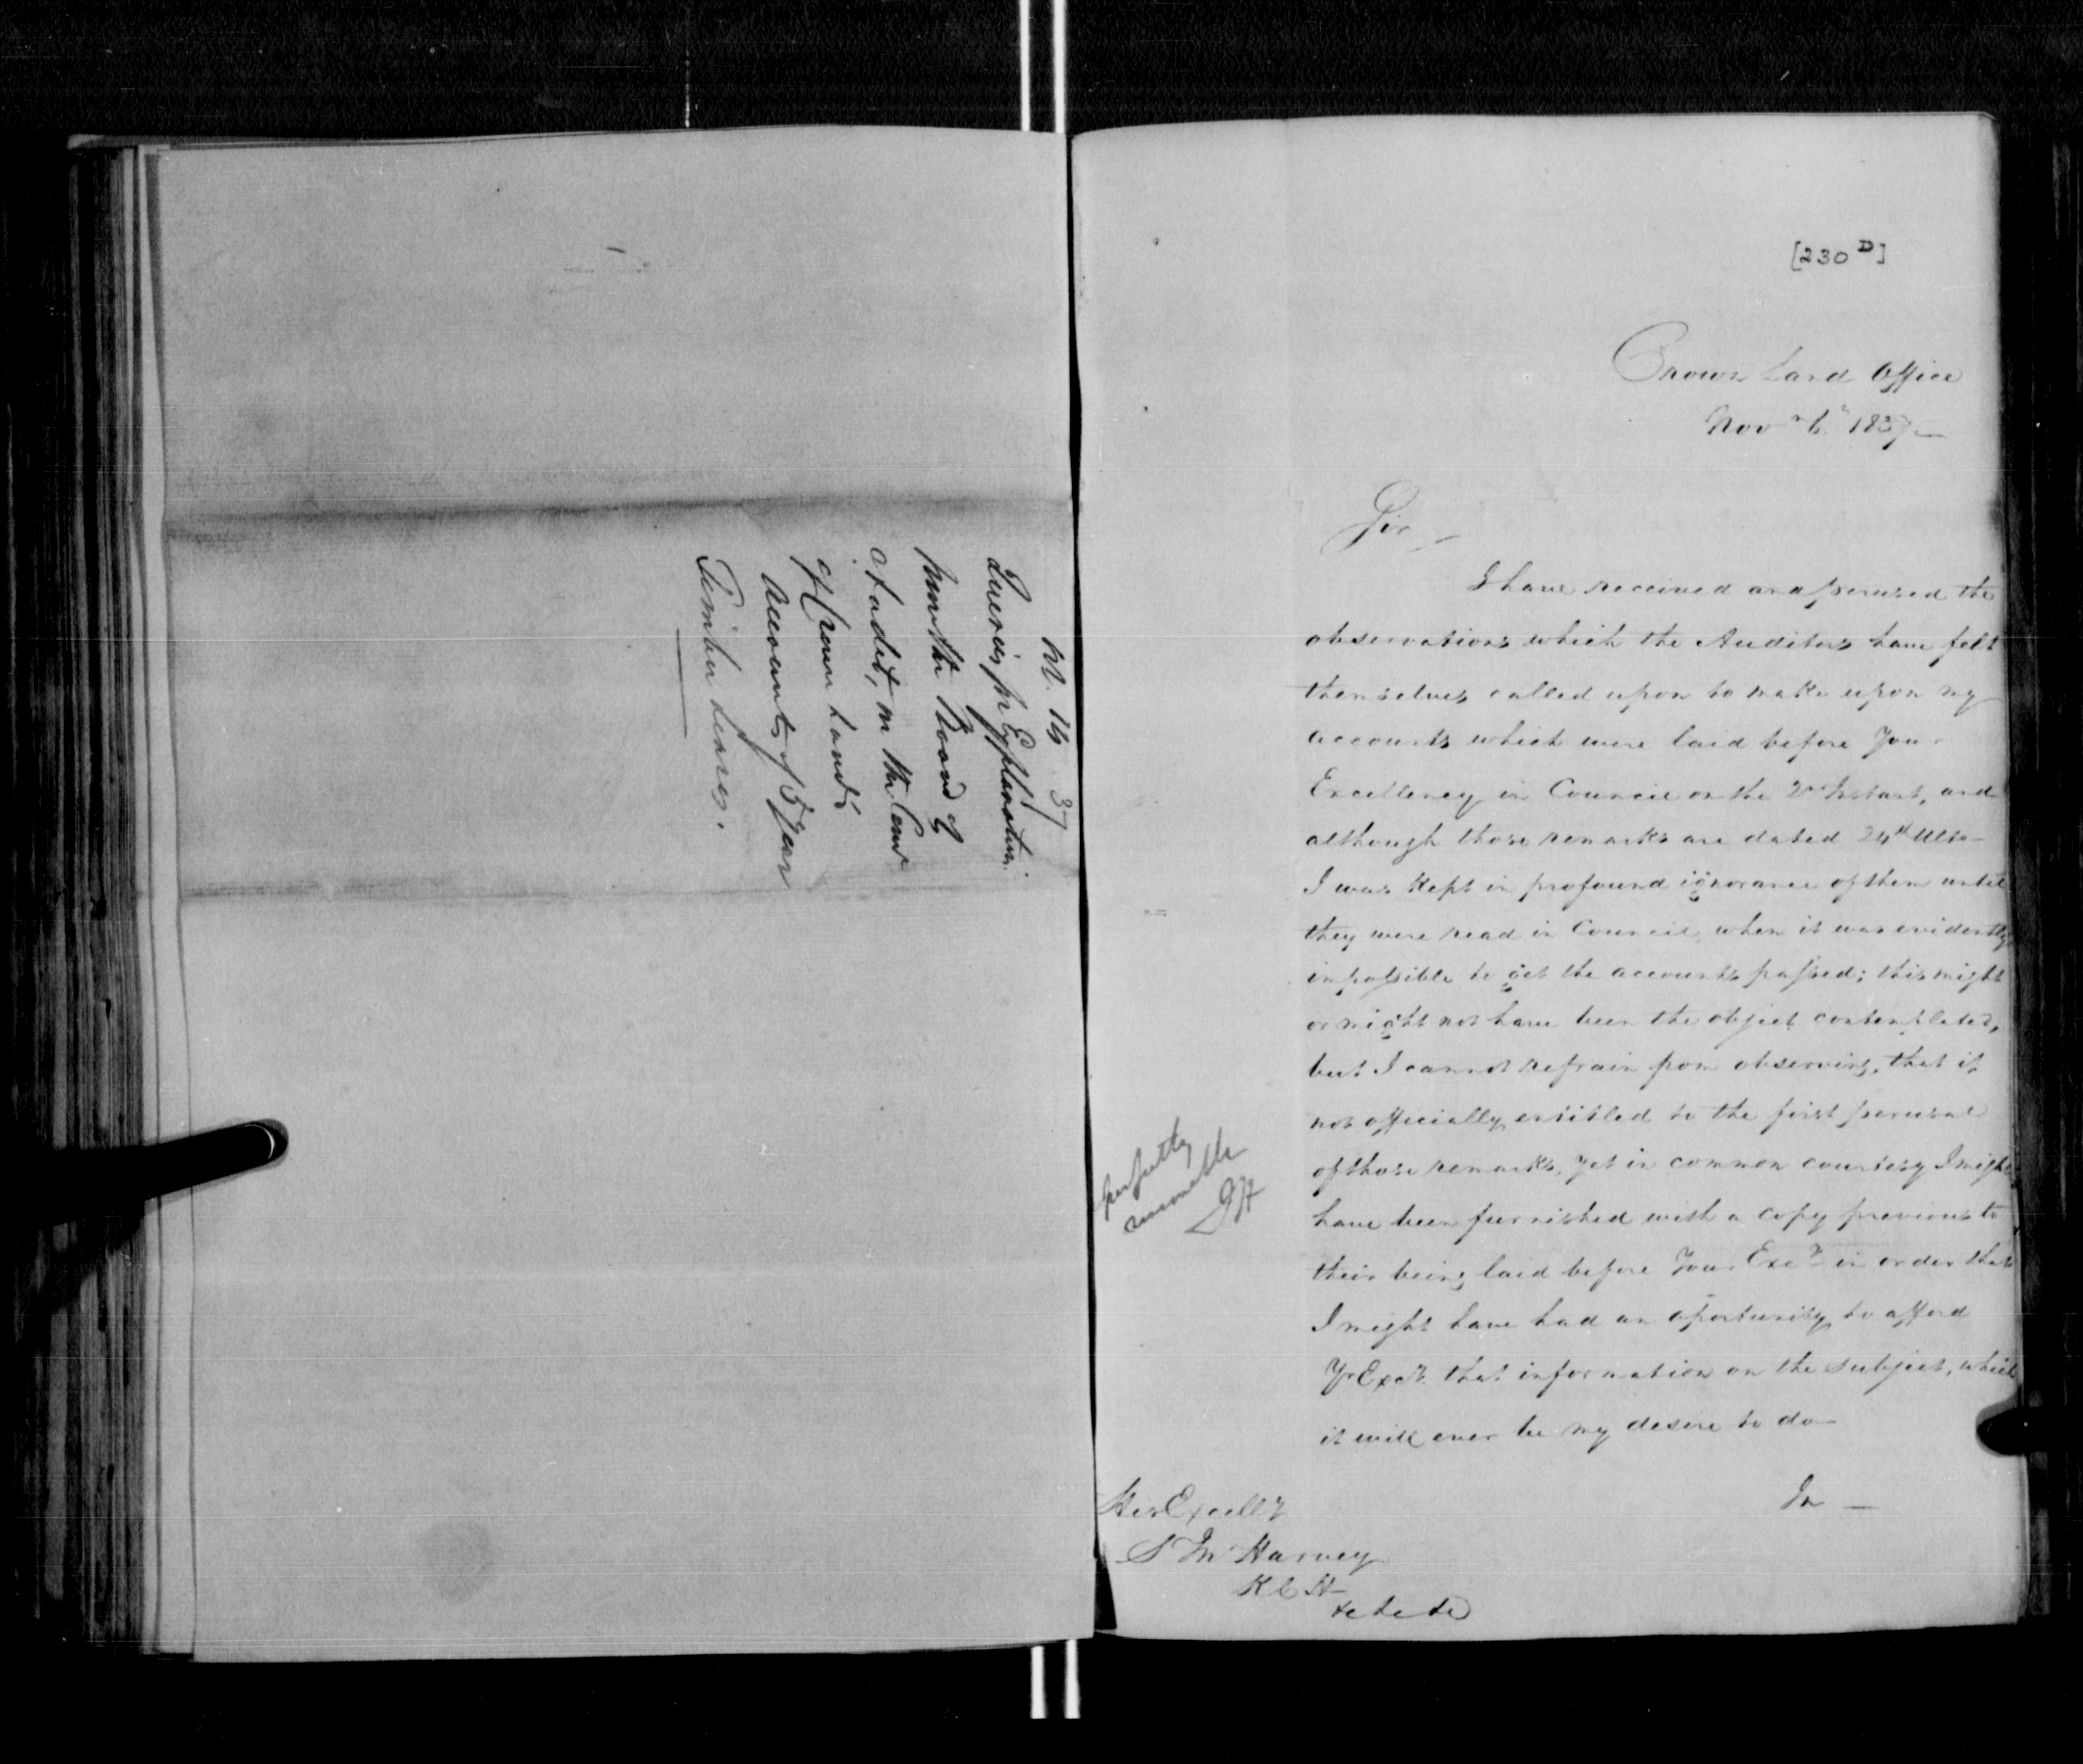 Queries for Explanation
from the Board of
of Audit, on the Comr
of Crown Land's
Accounts of 5 Year
Timber Leases.
[230 D]
Crown Land Office
Novr 6th 1837
Sir
I have received and perused the
observations which the Auditors have felt
themselves called upon to make upon my
accounts which were laid before Your
Excellency in Council on the 2nd Instant, and
although those remarks are dated 24th Ulto
I was kept in profound ignorance of them until
they were read in Council when it was evidently
impossible to get the accounts passed; this might
or might not have been the object contemplated,
but I cannot refrain from observing, that if
not officially entitled to the first perusal
of those remarks, yet in common courtesy I might
have been furnished with a copy previous to
their being laid before Your Excy in order that
I might have had an oportunity to afford
Yr Excy that information on the subject, which
it will ever be my desire to do
perfectly
reasonable
JH
In
His Excelly
S Jn Harvey
K C H
&c &c &c